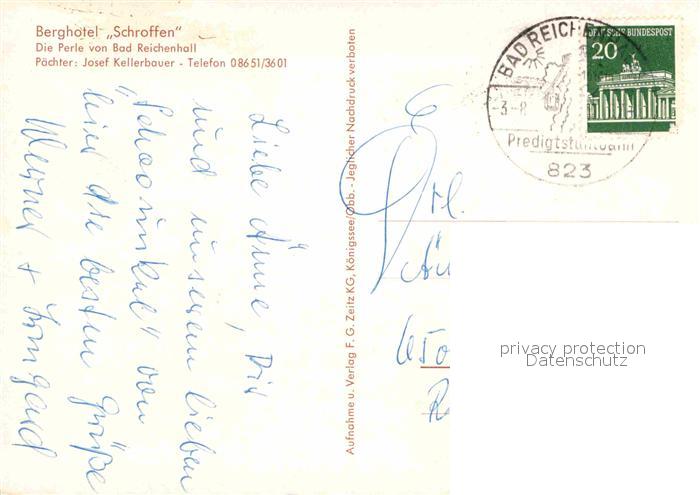 Berghotel „Schroffen"
Die Perle von Bad Reichenhall
Pächter: Josef Kellerbauer - Telefon 08651/3601
Liebe Änne, Dir
und unserem lieben
hier die besten Grüße
Werner + Irmgard
Aufnahme u. Verlag F. G. Zeitz KG, Königssee/Obb. - Jeglicher Nachdruck verboten
Frl.
650
R
BAD REICHE
-3.-8.
Predigtstuhlbahn
823
20
DEUTSCHE BUNDESPOST
privacy protection
Datenschutz